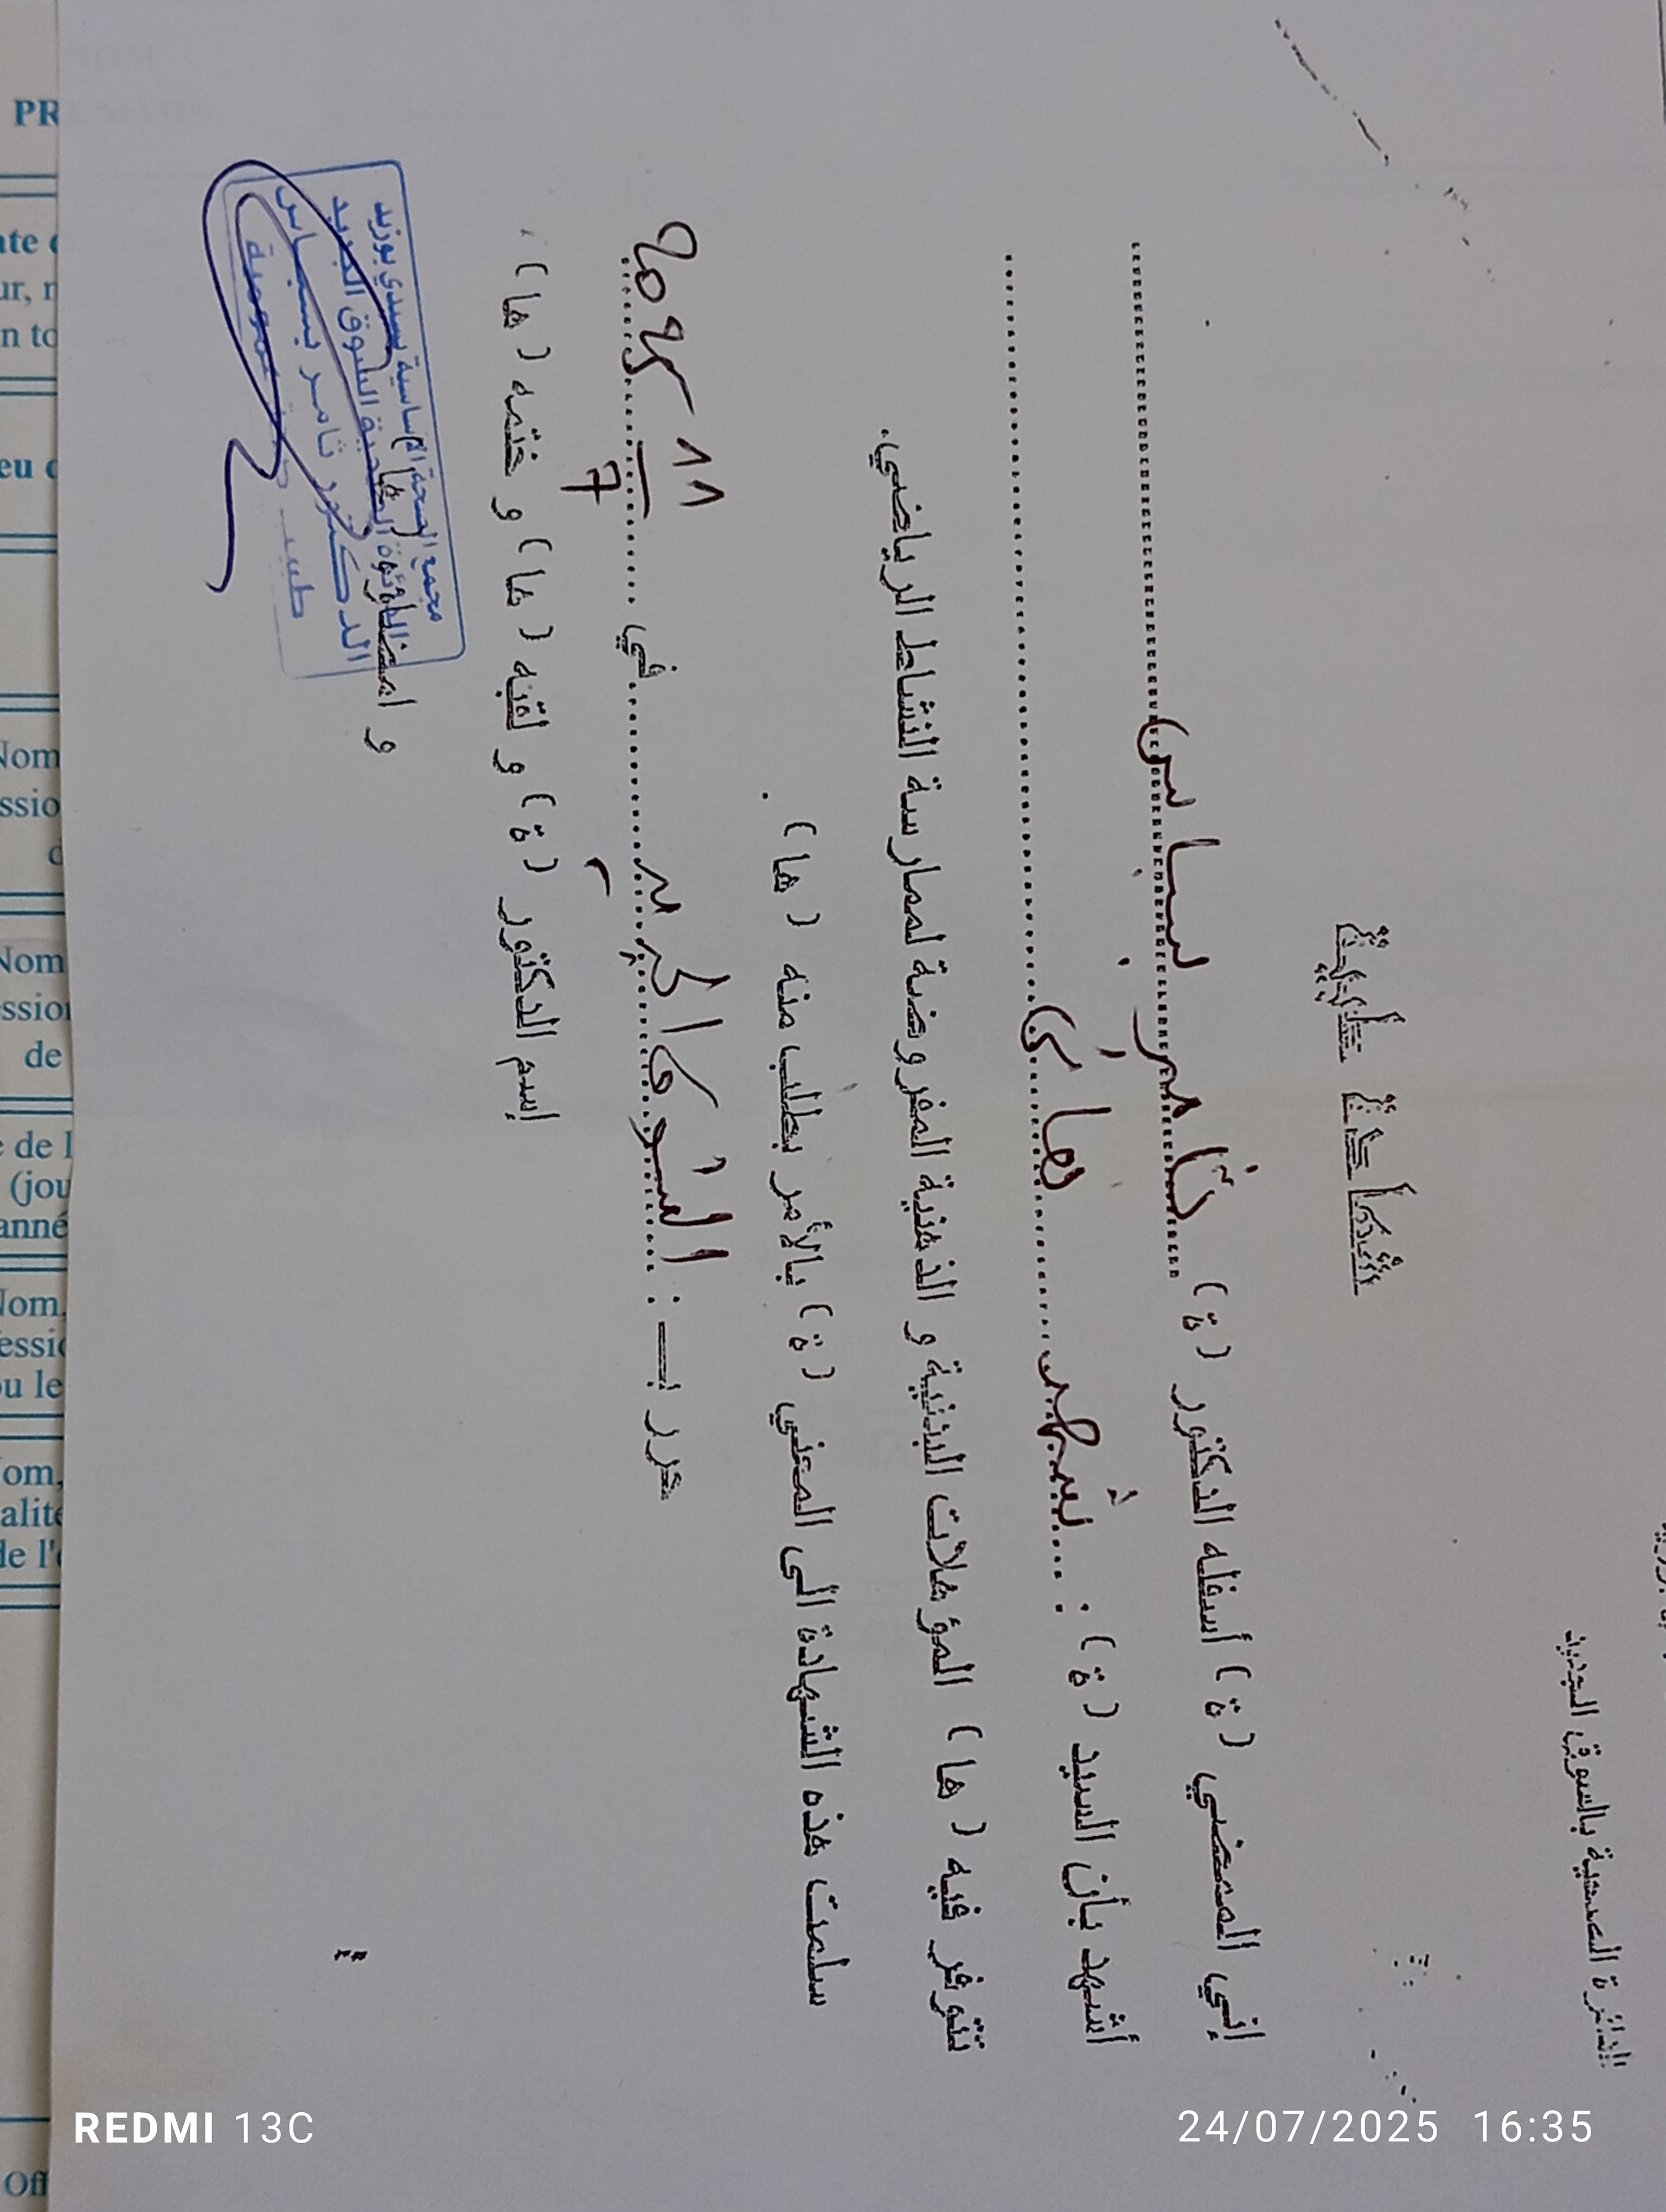 الدائرة الصحية بالسوق الجديد
شهادة طبية
إني الممضي (ة) أسفله الدكتور (ة) ثامر بسباس
أشهد بأن السيد (ة) : هاني
تتوفر فيه (ها) المؤهلات البدنية و الذهنية المفروضة لممارسة النشاط الرياضي.
سلمت هذه الشهادة الى المعني (ة) بالأمر بطلب منه (ها) .
حرر بـــ : السوق الجديد في 11/7 2025
إسم الدكتور (ة) و لقبه (ها) و ختمه (ها)
و امضاؤه (ها)
مجمع الصحة الأساسية بسيدي بوزيد
الدائرة الصحية السوق الجديد
الدكتور ثامر بسباس
PR
ate d
ur, n
n to
eu d
Nom
ssio
d
Nom
ession
de
e de l
(jou
anné
Nom,
essio
ou le
Nom,
alité
de l'o
Off
REDMI 13C
24/07/2025 16:35